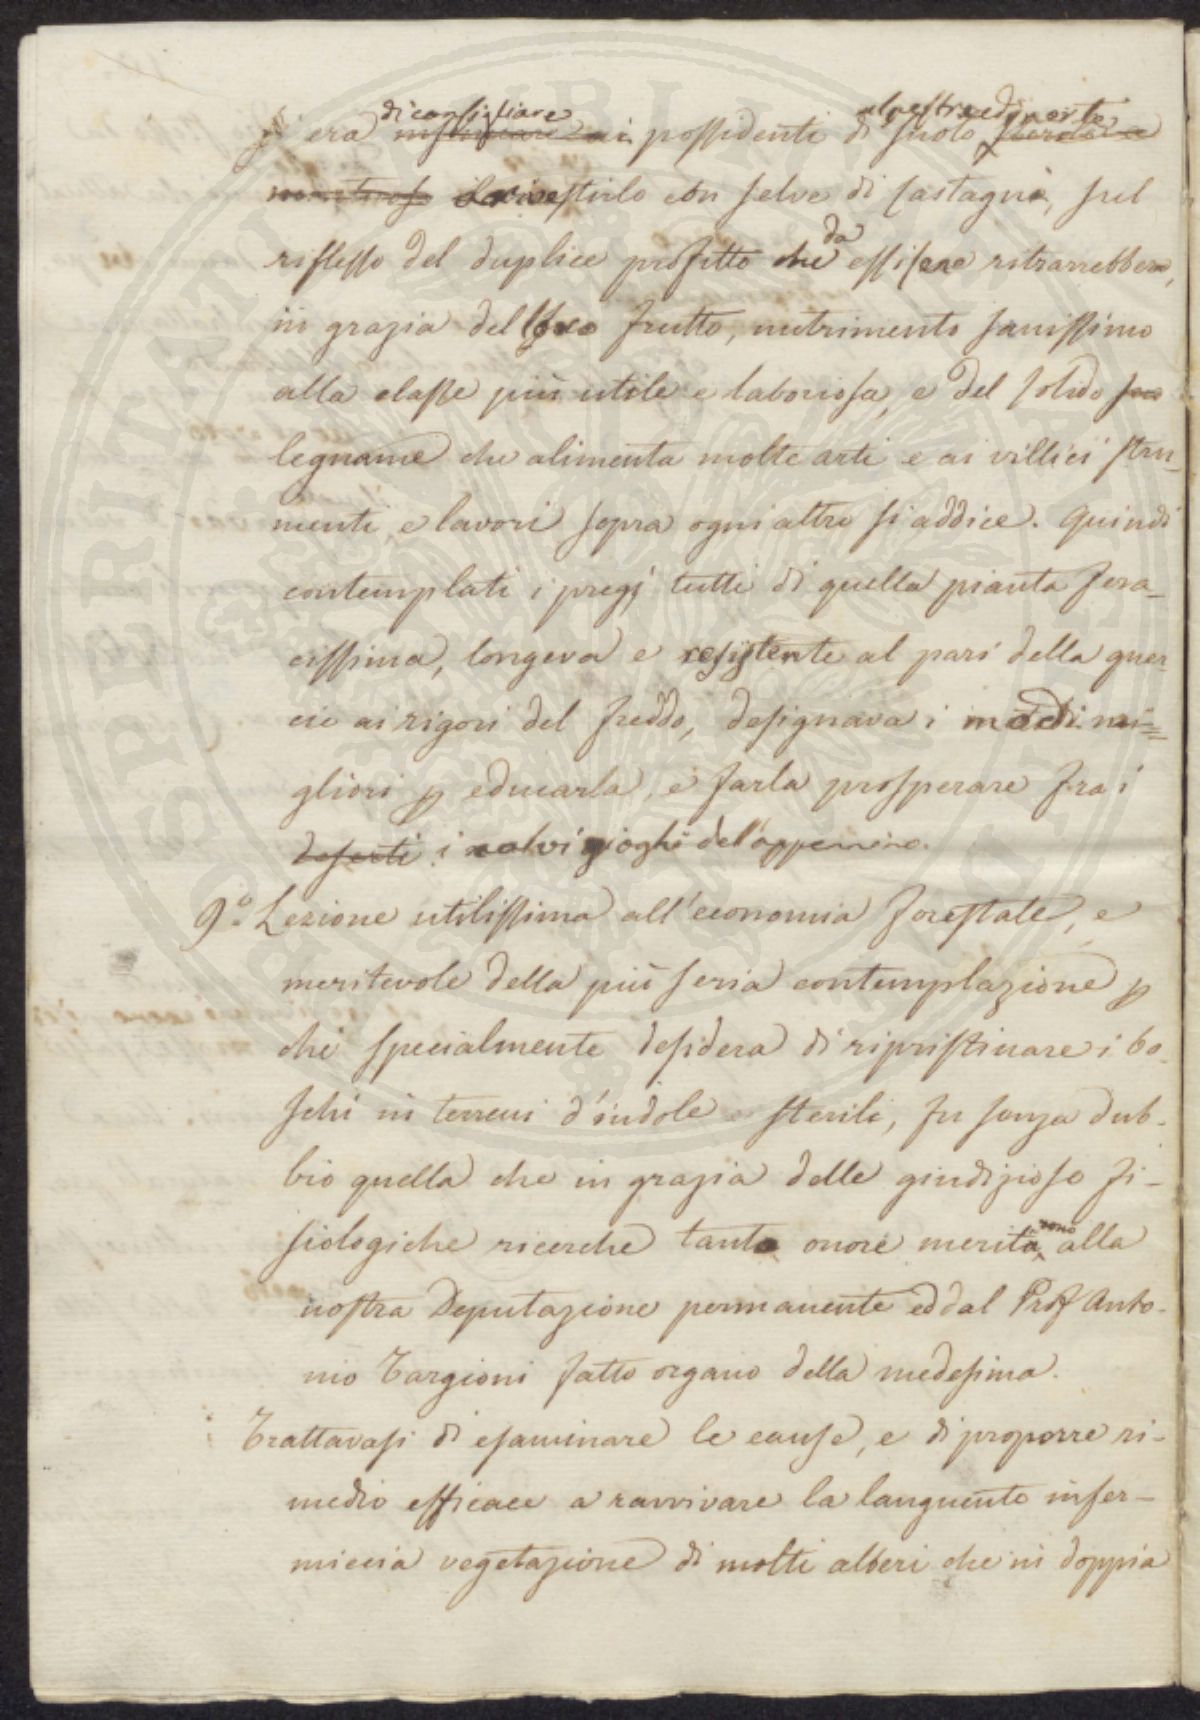 di consigliare alpestre ed inerte
gl' era insinuare ai possidenti di suolo sterile e
montuoso il rivestirlo con selve di castagni, sul
riflesso del duplice profitto che da essi ritrarrebbero,
in grazia del loro frutto, nutrimento sanissimo
alla classe più utile e laboriosa, e del solido suo
legname che alimenta molte arti e ai villici stru-
menti, e lavori sopra ogni altro si addice. Quindi
contemplati i pregj tutti di quella pianta fera-
cissima, longeva e resistente al pari della quer-
cie ai rigori del freddo, designava i modi mi-
gliori p educarla, e farla prosperare fra i
deserti i calvi gioghi dell'appennino.
9.° Lezione utilissima all'economia forestale, e
meritevole della più seria contemplazione p
chi specialmente desidera di ripristinare i bo-
schi in terreni d'indole sterili, fu senza dub-
bio quella che in grazia delle giudiziose fi-
siologiche ricerche tanto onore meritarono alla
nostra Deputazione permanente ed al Prof Anto-
nio Targioni fatto organo della medesima.
Trattavasi di esaminare le cause, e di proporre ri-
medio efficace a ravvivare la languente infer-
miccia vegetazione di molti alberi che in doppia